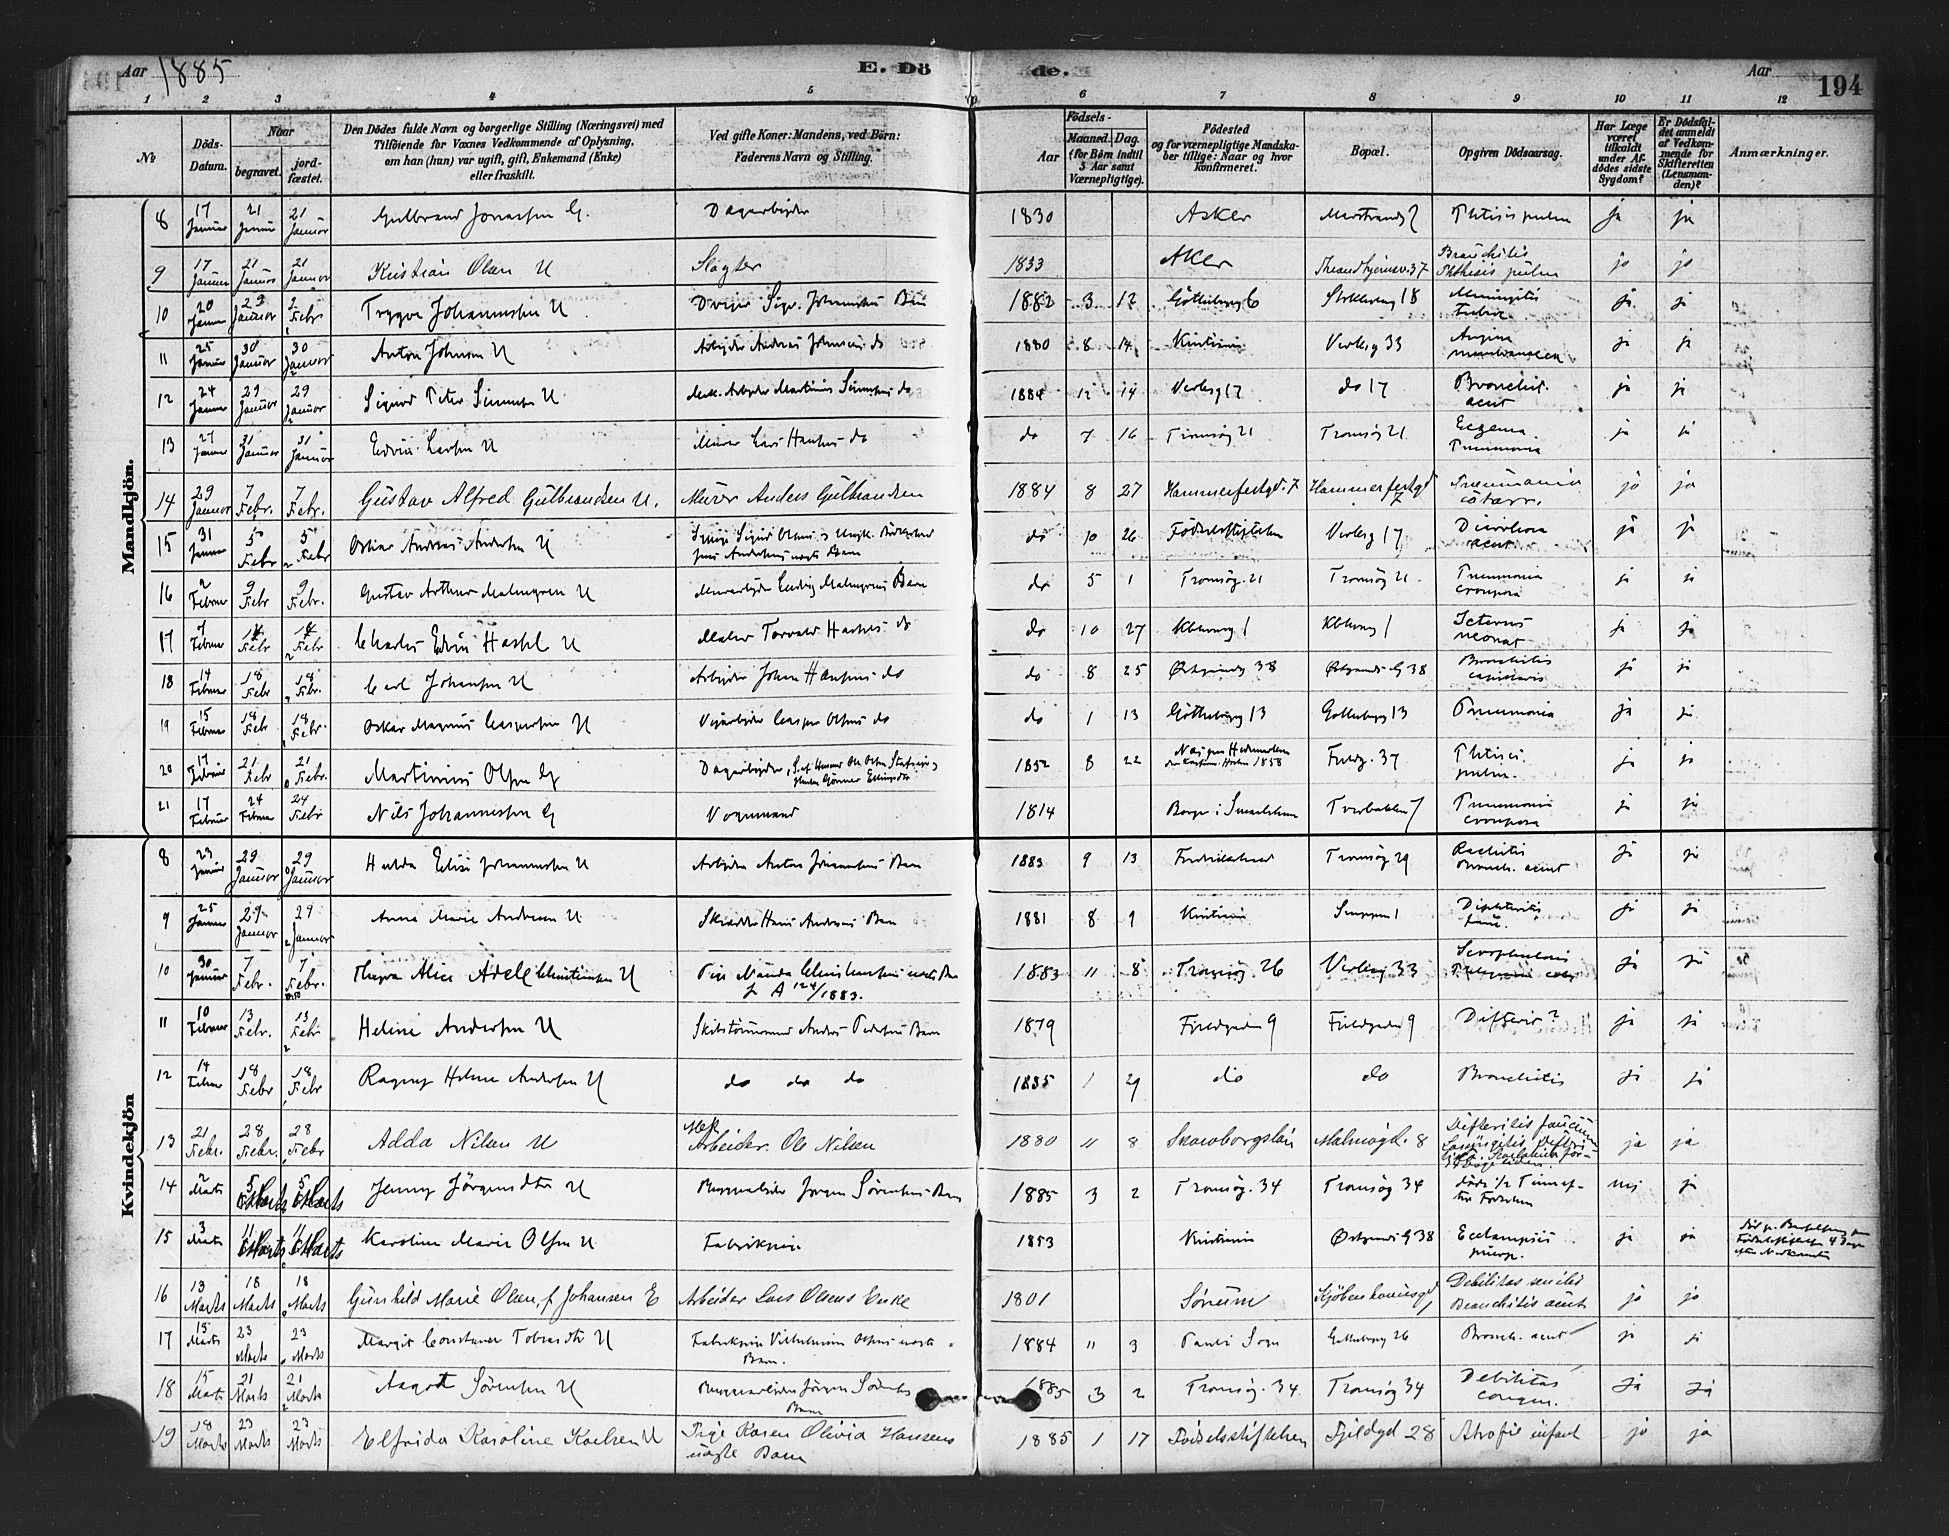 Aar 1885 E. Döde. Aar 194
1 2 3 4 5 6 7 8 9 10 11 12
No
Döds-Datum.
Naar
begravet.
jordfæstet.
Den Dödes fulde Navn og borgerlige Stilling (Næringsvei) med
Tilföiende for Voxnes Vedkommende af Oplysning,
om han (hun) var ugift, gift, Enkemand (Enke)
eller fraskilt.
Ved gifte Koner: Mandens, ved Börn:
Faderens Navn og Stilling.
Födsels-
Aar Maaned. Dag.
(for Börn indtil
5 Aar samt
Værnepligtige).
Födested
og for værnepligtige Mandska-
ber tillige: Naar og hvor
konfirmeret.
Bopæl.
Opgiven Dödsaarsag.
Har Læge
været
tilkaldt
under Af-
dödes sidste
Sygdom?
Er Dödsfal-
det anmeldt
af Vedkom-
mende for
Skifteretten
(Lensman-
den)?
Anmærkninger.
Mandkjön.
8 17 Januar 21 Januar 21 Januar Gulbrand G. Dagarbeider 1830 Asker Phtisis pulm ja ja
9 17 Januar 21 Januar 21 Januar Kristian Olsen U Slagter 1833 Aker Bronchitis Phthisis pulm ja ja
10 20 Januar 29 Januar 2 Febr Trygve Johannesen U 1882 3 12 Götheborg 6 18 Meningitis tuber ja ja
11 25 Januar 30 Januar 30 Januar Anton Johnsen U Arbeider Andreas Johnsens do 1880 8 14 Kristiania Verksg 33 Angina membranacea ja ja
12 24 Januar 29 Januar 29 Januar Sigurd Peter Simensen U Mek. Arbeider Martinius Simensens do 1884 12 14 Verksg 17 do 17 Bronchit. acut ja ja
13 27 Januar 31 Januar 31 Januar Edvin Larsen U Murer Lars Hansens do do 7 16 Tromsög 21 Tromsög 21 Eczema Pneumonia ja ja
14 29 Januar 7 Febr. 7 Febr. Gustav Alfred Gulbrandsen U. Murer Anders Gulbrandsen 1884 8 27 Hammerfestgd. 7 Hammerfestgd 7 Pneumonia catarr. ja ja
15 31 Januar 5 Febr 5 Febr Oskar Andreas Andersen U do 10 26 Födselsstiftelsen Verksg 17 acut ja ja
16 2 Februar 9 Febr 9 Febr. Gustav Arthur Malmgren U Murarbeider Ludvig Malmgrens Barn do 5 1 Tromsög. 21 Tromsög 21 Pneumonia crouposa ja ja
17 7 Februar 14 Febr 14 Febr Charles Edvin Hassel U Maler Torvald Hassels do do 10 27 Kbhvng 1 Kbhvng 1 Icterus neonat ja ja
18 14 Februar 18 Febr 18 Febr. Carl Johansen U Arbeider Johan Hansens do do 8 25 38 G 38 Bronchitis capillaris ja ja
19 15 Februar 18 Febr 18 Febr. Oskar Magnus Caspersen U Veiarbeider Casper Olsens do do 1 13 Götheborg 13 Gotheborg 13 Pneumonia ja ja
20 17 Februar 21 Febr 21 Febr. Martinius Olsen G Dagarbeider 1852 8 22 1858 37 Phtisis pulm. ja ja
21 17 Februar 24 Februar 24 Febr Nils Johannesen G Vognmand 1814 Borge i Smaalehnene Tverbakken 7 Pneumonia crouposa ja ja
Kvindekjön
8 23 Januar 29 Januar 29 Januar Hulda Elise Johannesen U Arbeider Anton Johannesens Barn 1883 9 13 Fredrikstad Tromsög 29 Rachitis Bronch. acut ja ja
9 25 Januar 29 Januar 29 Januar Anna Marie Andresen U Skrædder Hans Andresens Barn 1881 8 9 Kristiania 1 Diphteritis fauc. ja ja
10 30 Januar 7 Febr. 7 Febr. Thyra Alice Adele Christiansen U Pige Nanda Christiansens uægte Barn f A 124/1883. 1883 " 8 Tromsög 26 Verksg 33 ja ja
11 10 Februar 13 Febr. 13 Febr Helene Andersen U Barn 1879 Fjeldgaden 9 Fjeldgaden 9 ja ja
12 14 Februar 18 Febr 18 Febr Helene Andersen U do do do 1885 1 29 do do Bronchitis ja ja
13 21 Febr. 28 Febr. 28 Febr Adda Nilsen U Mek Arbeider Ole Nilsen 1880 " 8 Skaraborgslän Malmögd. 8 Difteritis faucium ja ja
14 2 Marts 5 Marts 5 Marts Jenny Jörgensdtr U Byggearbeider Jörgen Sörensens Barn 1885 3 2 Tromsög. 34 Tromsög 34 död 1/2 Time efter Födselen nei ja
15 3 Marts 11 Marts 11 Marts Karoline Marie Olsen U Fabrikpige 1853 Kristiania G 38 Ecclampsia puerp. ja ja
16 13 Marts 18 Marts 18 Marts Gunhild Marie Olsen, f Johansen E Arbeider Lars Olsens Enke 1801 Sörum Kjöbenhavnsgd 1 Debilitas senilis Bronchitis acut ja ja
17 15 Marts 23 Marts 23 Marts Margit Constance U Fabrikpige Vilhelmine Olsens uægte Barn. 1884 " 3 Pauli Sogn Gotheborg 26 Bronch. acut ja ja
18 15 Marts 21 Marts 21 Marts Aagot Sörensen U Byggearbeider Jörgen Sörensens Barn 1885 3 2 Tromsög. 34 Tromsög 34 Debilitas congen. ja ja
19 18 Marts 23 Marts 23 Marts Elfrida Karoline Karlsen U Pige Karen Olivia Hansens uægte Barn 1885 1 17 Födselsstiftelsen Fjeldgd 28 Atrofie infant ja ja